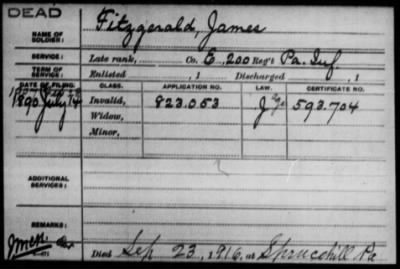 DEAD
NAME OF SOLDIER: Fitzgerald, James
SERVICE: Late rank, Co. E, 200 Reg't Pa. Inf.
TERM OF SERVICE: Enlisted , 1 Discharged , 1
DATE OF FILING. CLASS. APPLICATION NO. LAW. CERTIFICATE NO.
1890 July 14 Invalid, 823.053 593.704
Widow,
Minor,
ADDITIONAL SERVICES:
REMARKS:
Died Sep 23, 1916, at Sprucehill Pa